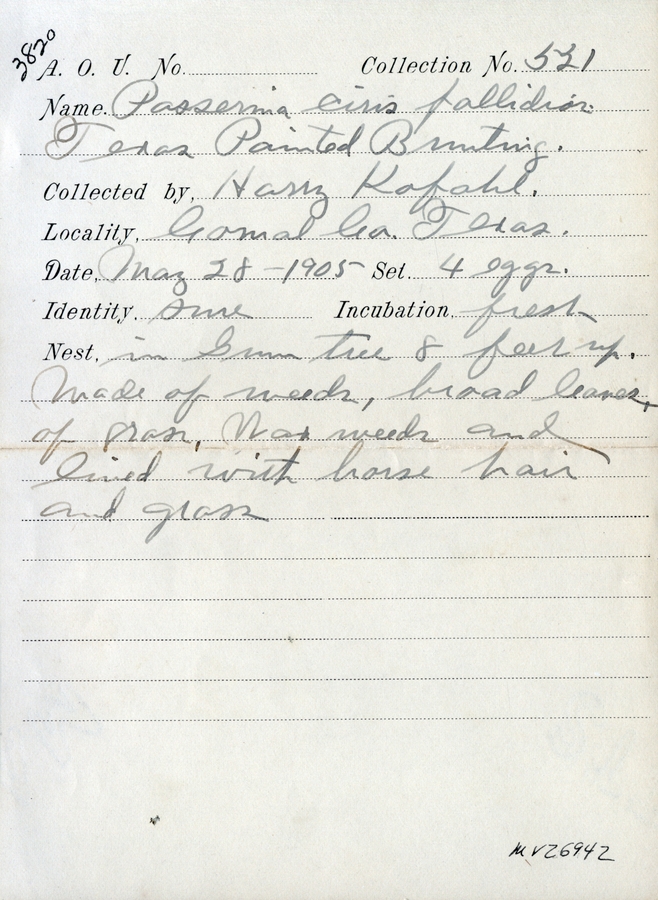 3820
A. O. U. No. Collection No. 531
Name. Passerina ciris pallidior.
Texas Painted Bunting.
Collected by, Harry Kofahl.
Locality, Comal Co. Texas.
Date, May 28 - 1905 Set. 4 eggs.
Identity, sure Incubation. fresh
Nest, in Gum tree 8 feet up.
Made of weeds, broad leaves,
of grass, Wax weeds and
lined with horse hair
and grass
MVZ6942